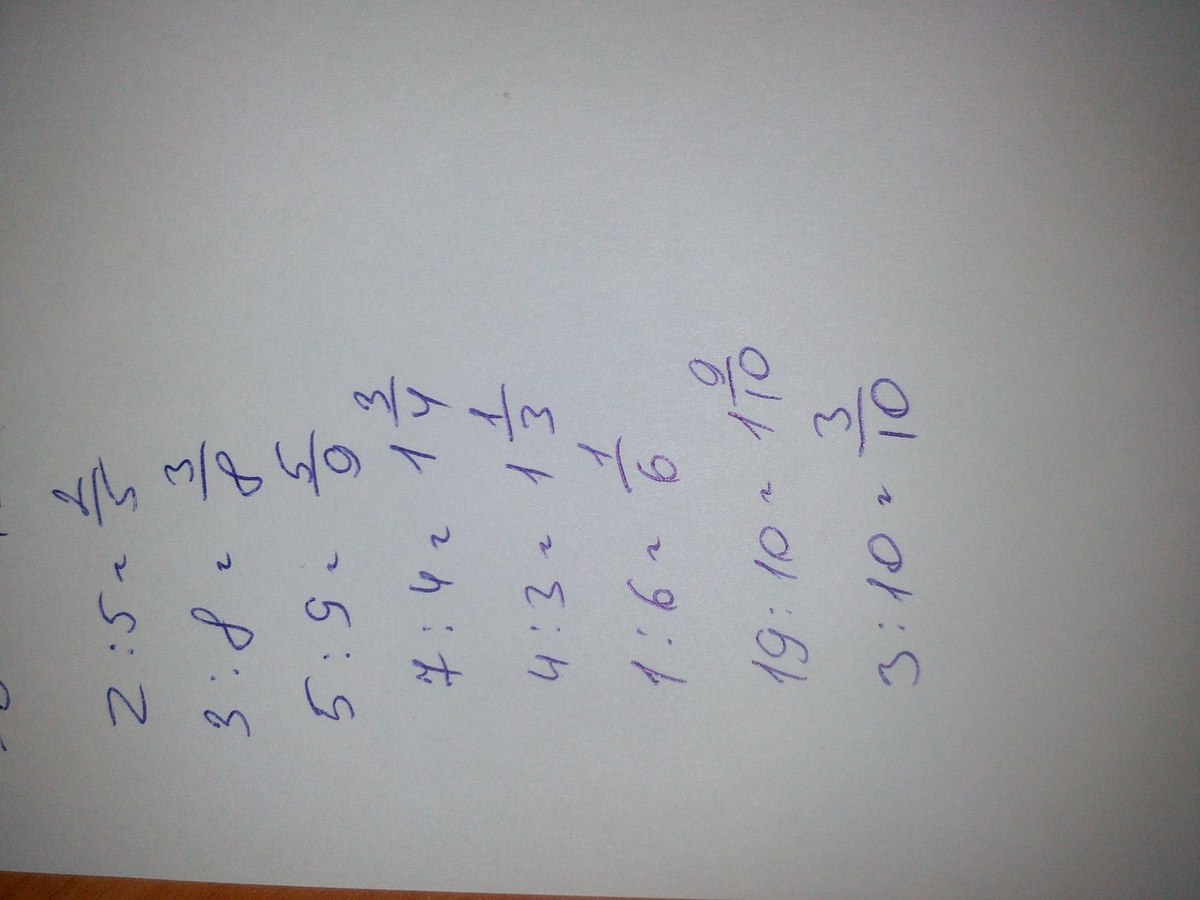 2 : 5 = 2/5
3 : 8 = 3/8
5 : 9 = 5/9
7 : 4 = 1 3/4
4 : 3 = 1 1/3
1 : 6 = 1/6
19 : 10 = 1 9/10
3 : 10 = 3/10